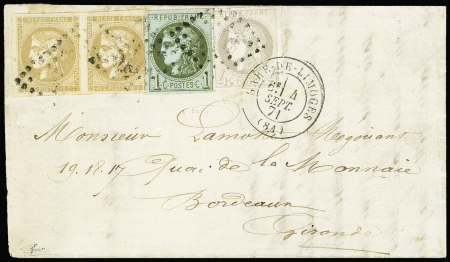 REPUB·FRANC·
REPUB·FRANC·
REPUB·FRANC·
1 C·POSTES·C· 1
GARE-DE-LIMOGES
4
SEPT.
71
(84)
Monsieur Lamothe Négociant
19.18.17 Quai de la Monnaie
Bordeaux
Gironde